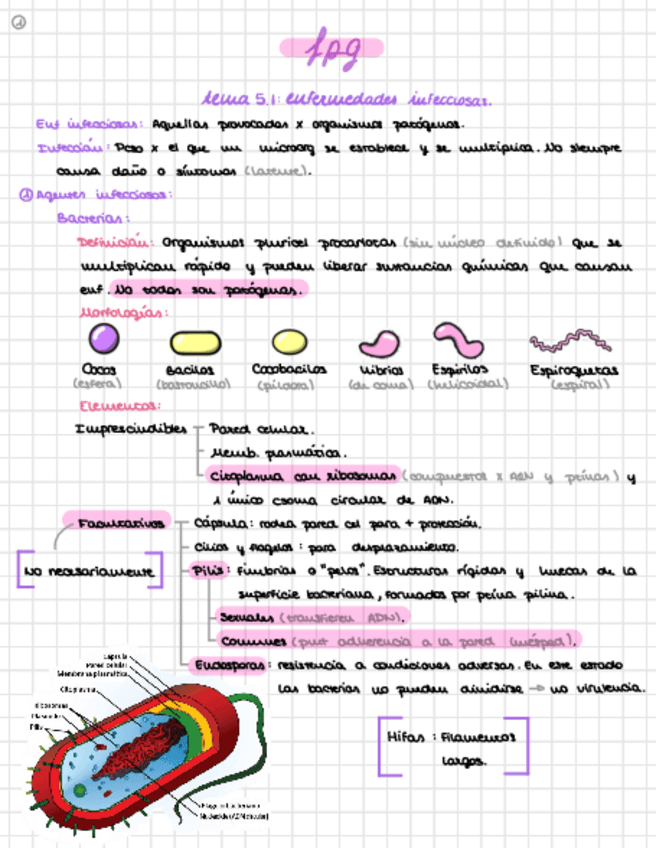 1
fpg
tema 5.1: enfermedades infecciosas.
Enf infecciosas: Aquellas provocadas x organismos patógenos.
Infección: Pcso x el que un microorg se establece y se multiplica. No siempre
causa daño o síntomas (latente).
1 Agentes infecciosos:
Bacterias:
Definición: Organismos pluricel procariotas (sin núcleo definido) que se
multiplican rápido y pueden liberar sustancias químicas que causan
enf. No todas son patógenas.
Morfologías:
Cocos Bacilos Cocobacilos Vibrios Espirilos Espiroquetas
(esfera) (bastoncillo) (píldora) (de coma) (helicoidal) (espiral)
Elementos:
Imprescindibles Pared celular.
Memb. plasmática.
Citoplasma con ribosomas (compuestos x ARN y prtínas) y
1 único csoma circular de ADN.
Facultativos Cápsula: rodea pared cel para + protección.
Cilios y flagelos: para desplazamiento.
No necesariamente Pilis: Fimbrias o "pelos". Estructuras rígidas y huecas de la
superficie bacteriana, formados por prtína pilina.
Sexuales (transfieren ADN).
Comunes (prmt adherencia a la pared huésped).
Endosporas: resistencia a condiciones adversas. En este estado
las bacterias no pueden dividirse → no virulencia.
Cápsula
Pared celular
Membrana plasmática
Citoplasma
Ribosomas
Plásmido
Pilis
Flagelo bacteriano
Nucleoide (ADN circular)
Hifas: Filamentos
largos.